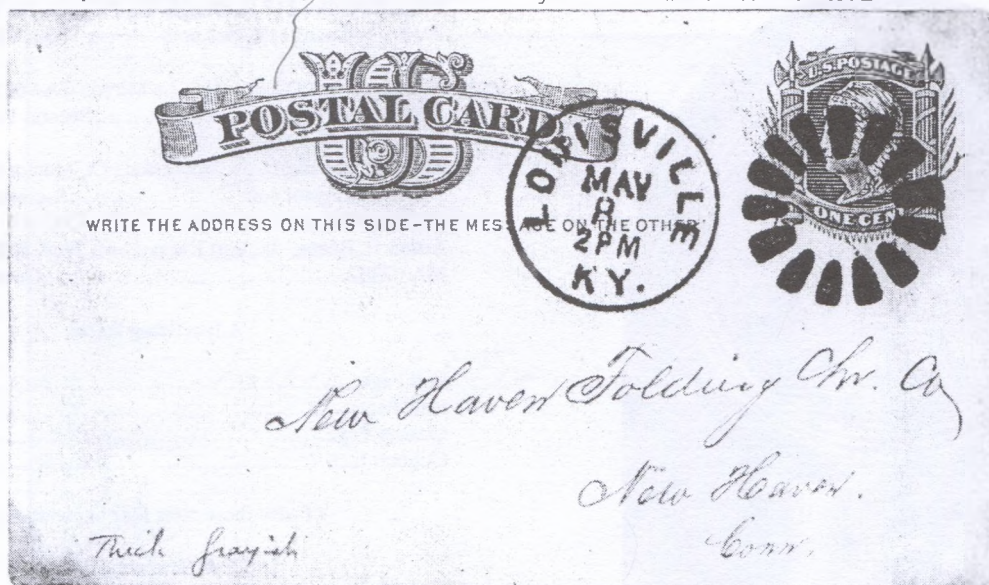 U.S. POSTAGE
US
POSTAL CARD
ONE CENT
WRITE THE ADDRESS ON THIS SIDE-THE MESSAGE ON THE OTHER
LOUISVILLE
MAY
8
2PM
KY.
New Haven Folding Chr. Co
New Haven.
Conn.
Thick Grayish